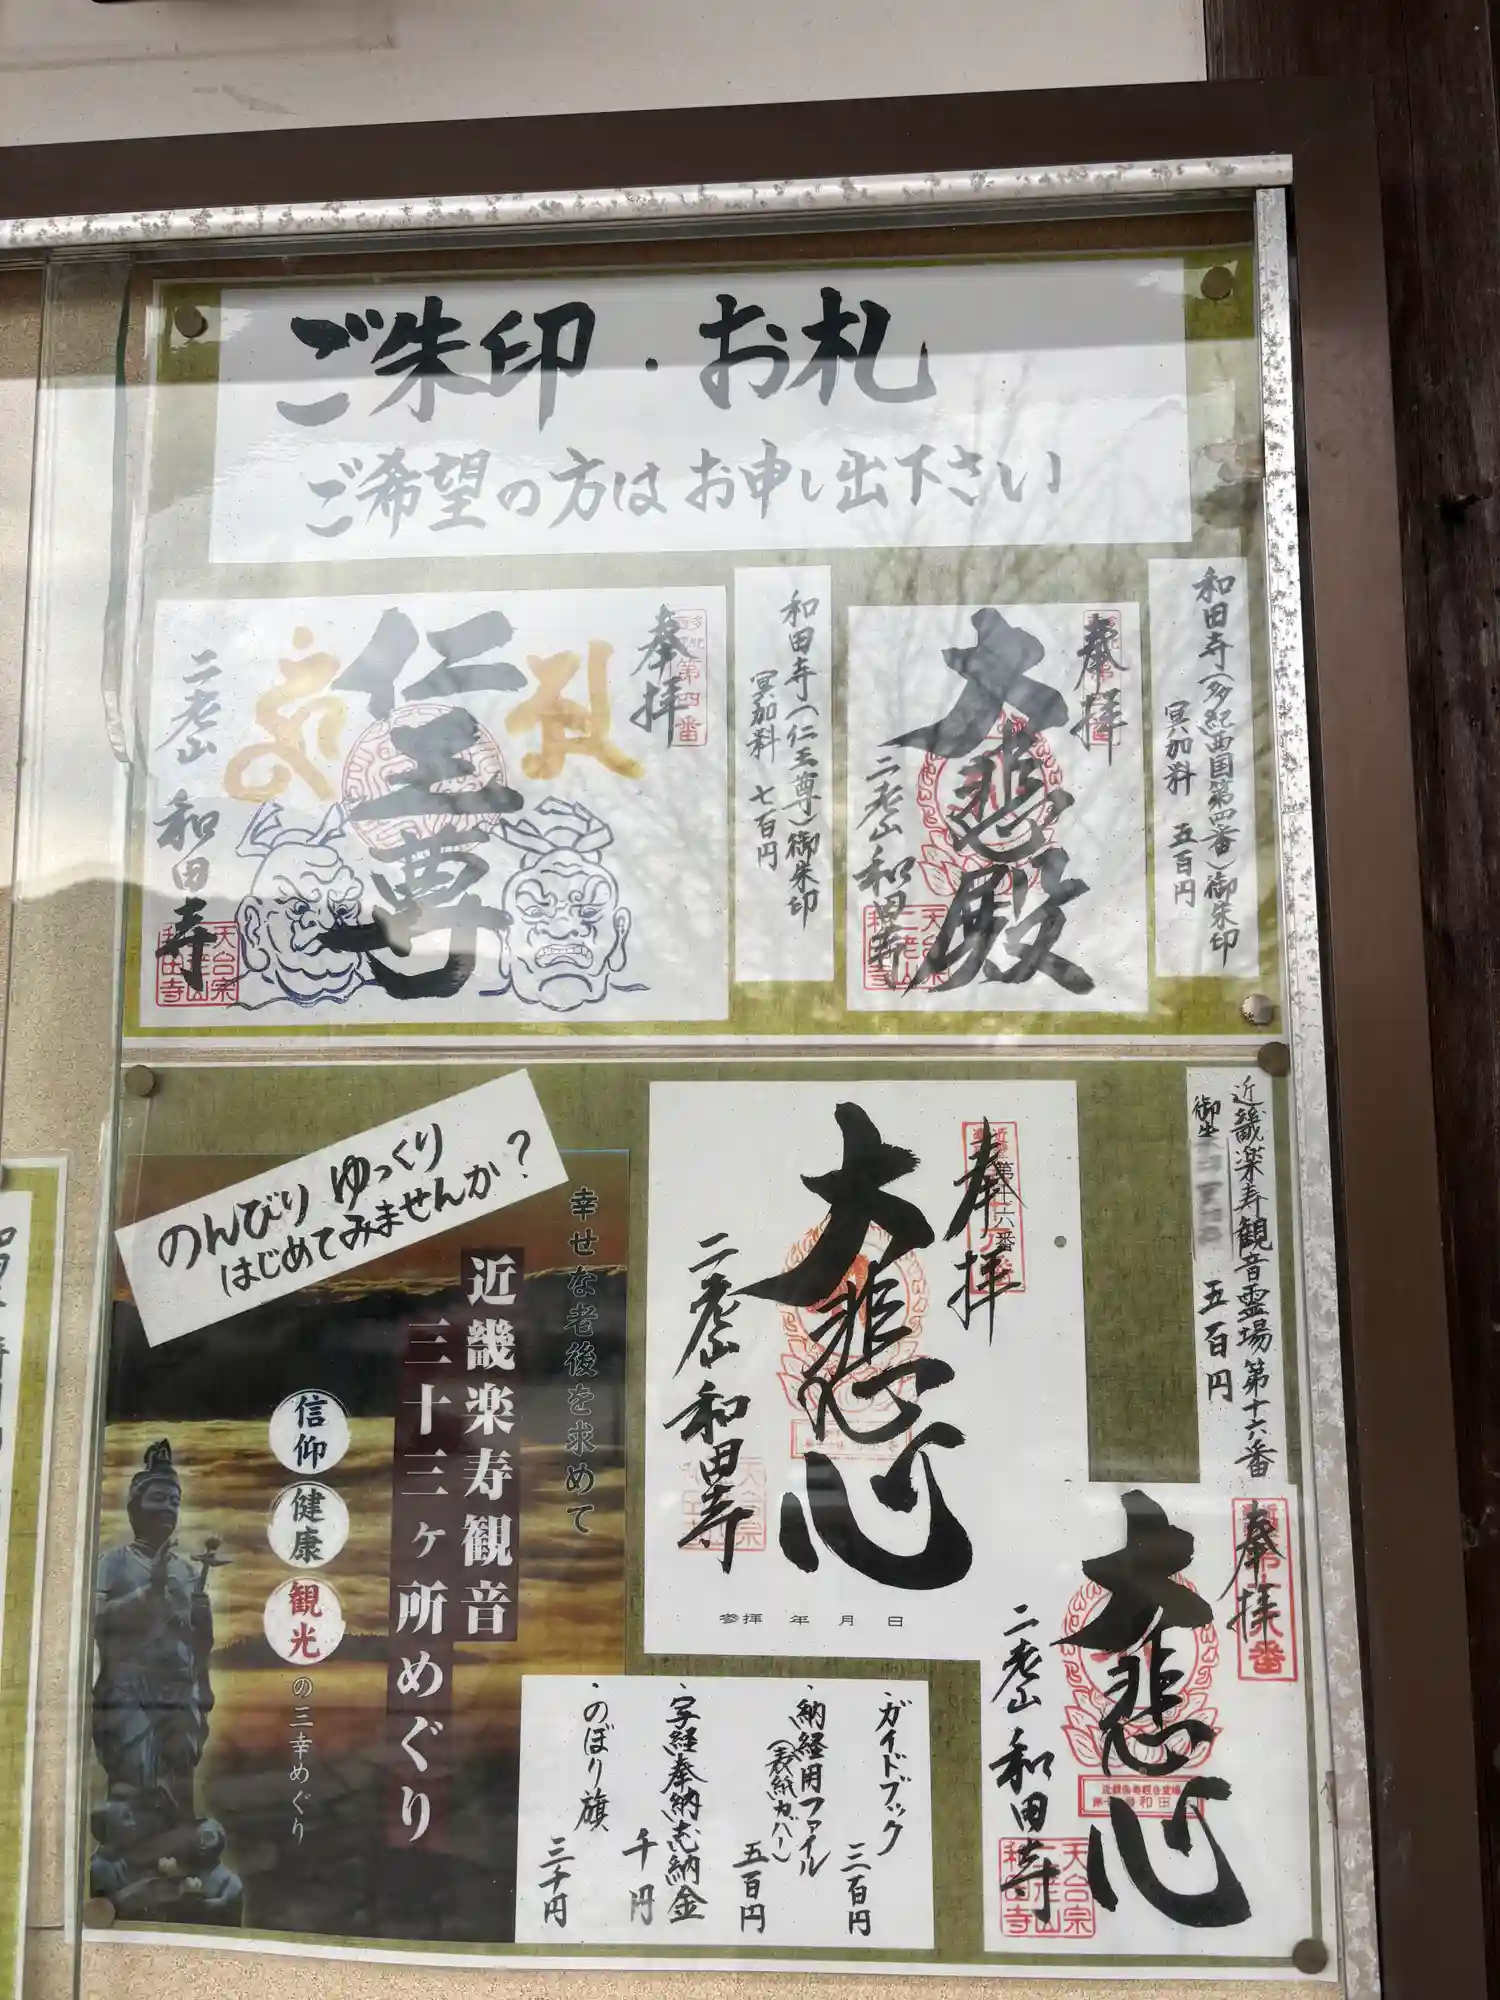 ご朱印・お札
ご希望の方はお申し出下さい
和田寺(多紀西国第四番)御朱印
冥加料 五百円
奉拝
大悲殿
二老山 和田寺
天台宗
二老山
和田寺
和田寺(仁王尊)御朱印
冥加料 七百円
奉拝
第四番
仁王尊
二老山 和田寺
天台宗
二老山
和田寺
近畿楽寿観音霊場第十六番
五百円
奉拝
第十六番
大悲心
二老山 和田寺
参拝 年 月 日
奉拝
大悲心
二老山 和田寺
天台宗
二老山
和田寺
のんびり ゆっくり
はじめてみませんか?
幸せな老後を求めて
近畿楽寿観音
三十三ヶ所めぐり
信仰
健康
観光
の三幸めぐり
・ガイドブック
三百円
・納経用ファイル
(表紙カバー)
五百円
・写経奉納志納金
千円
・のぼり旗
三千円